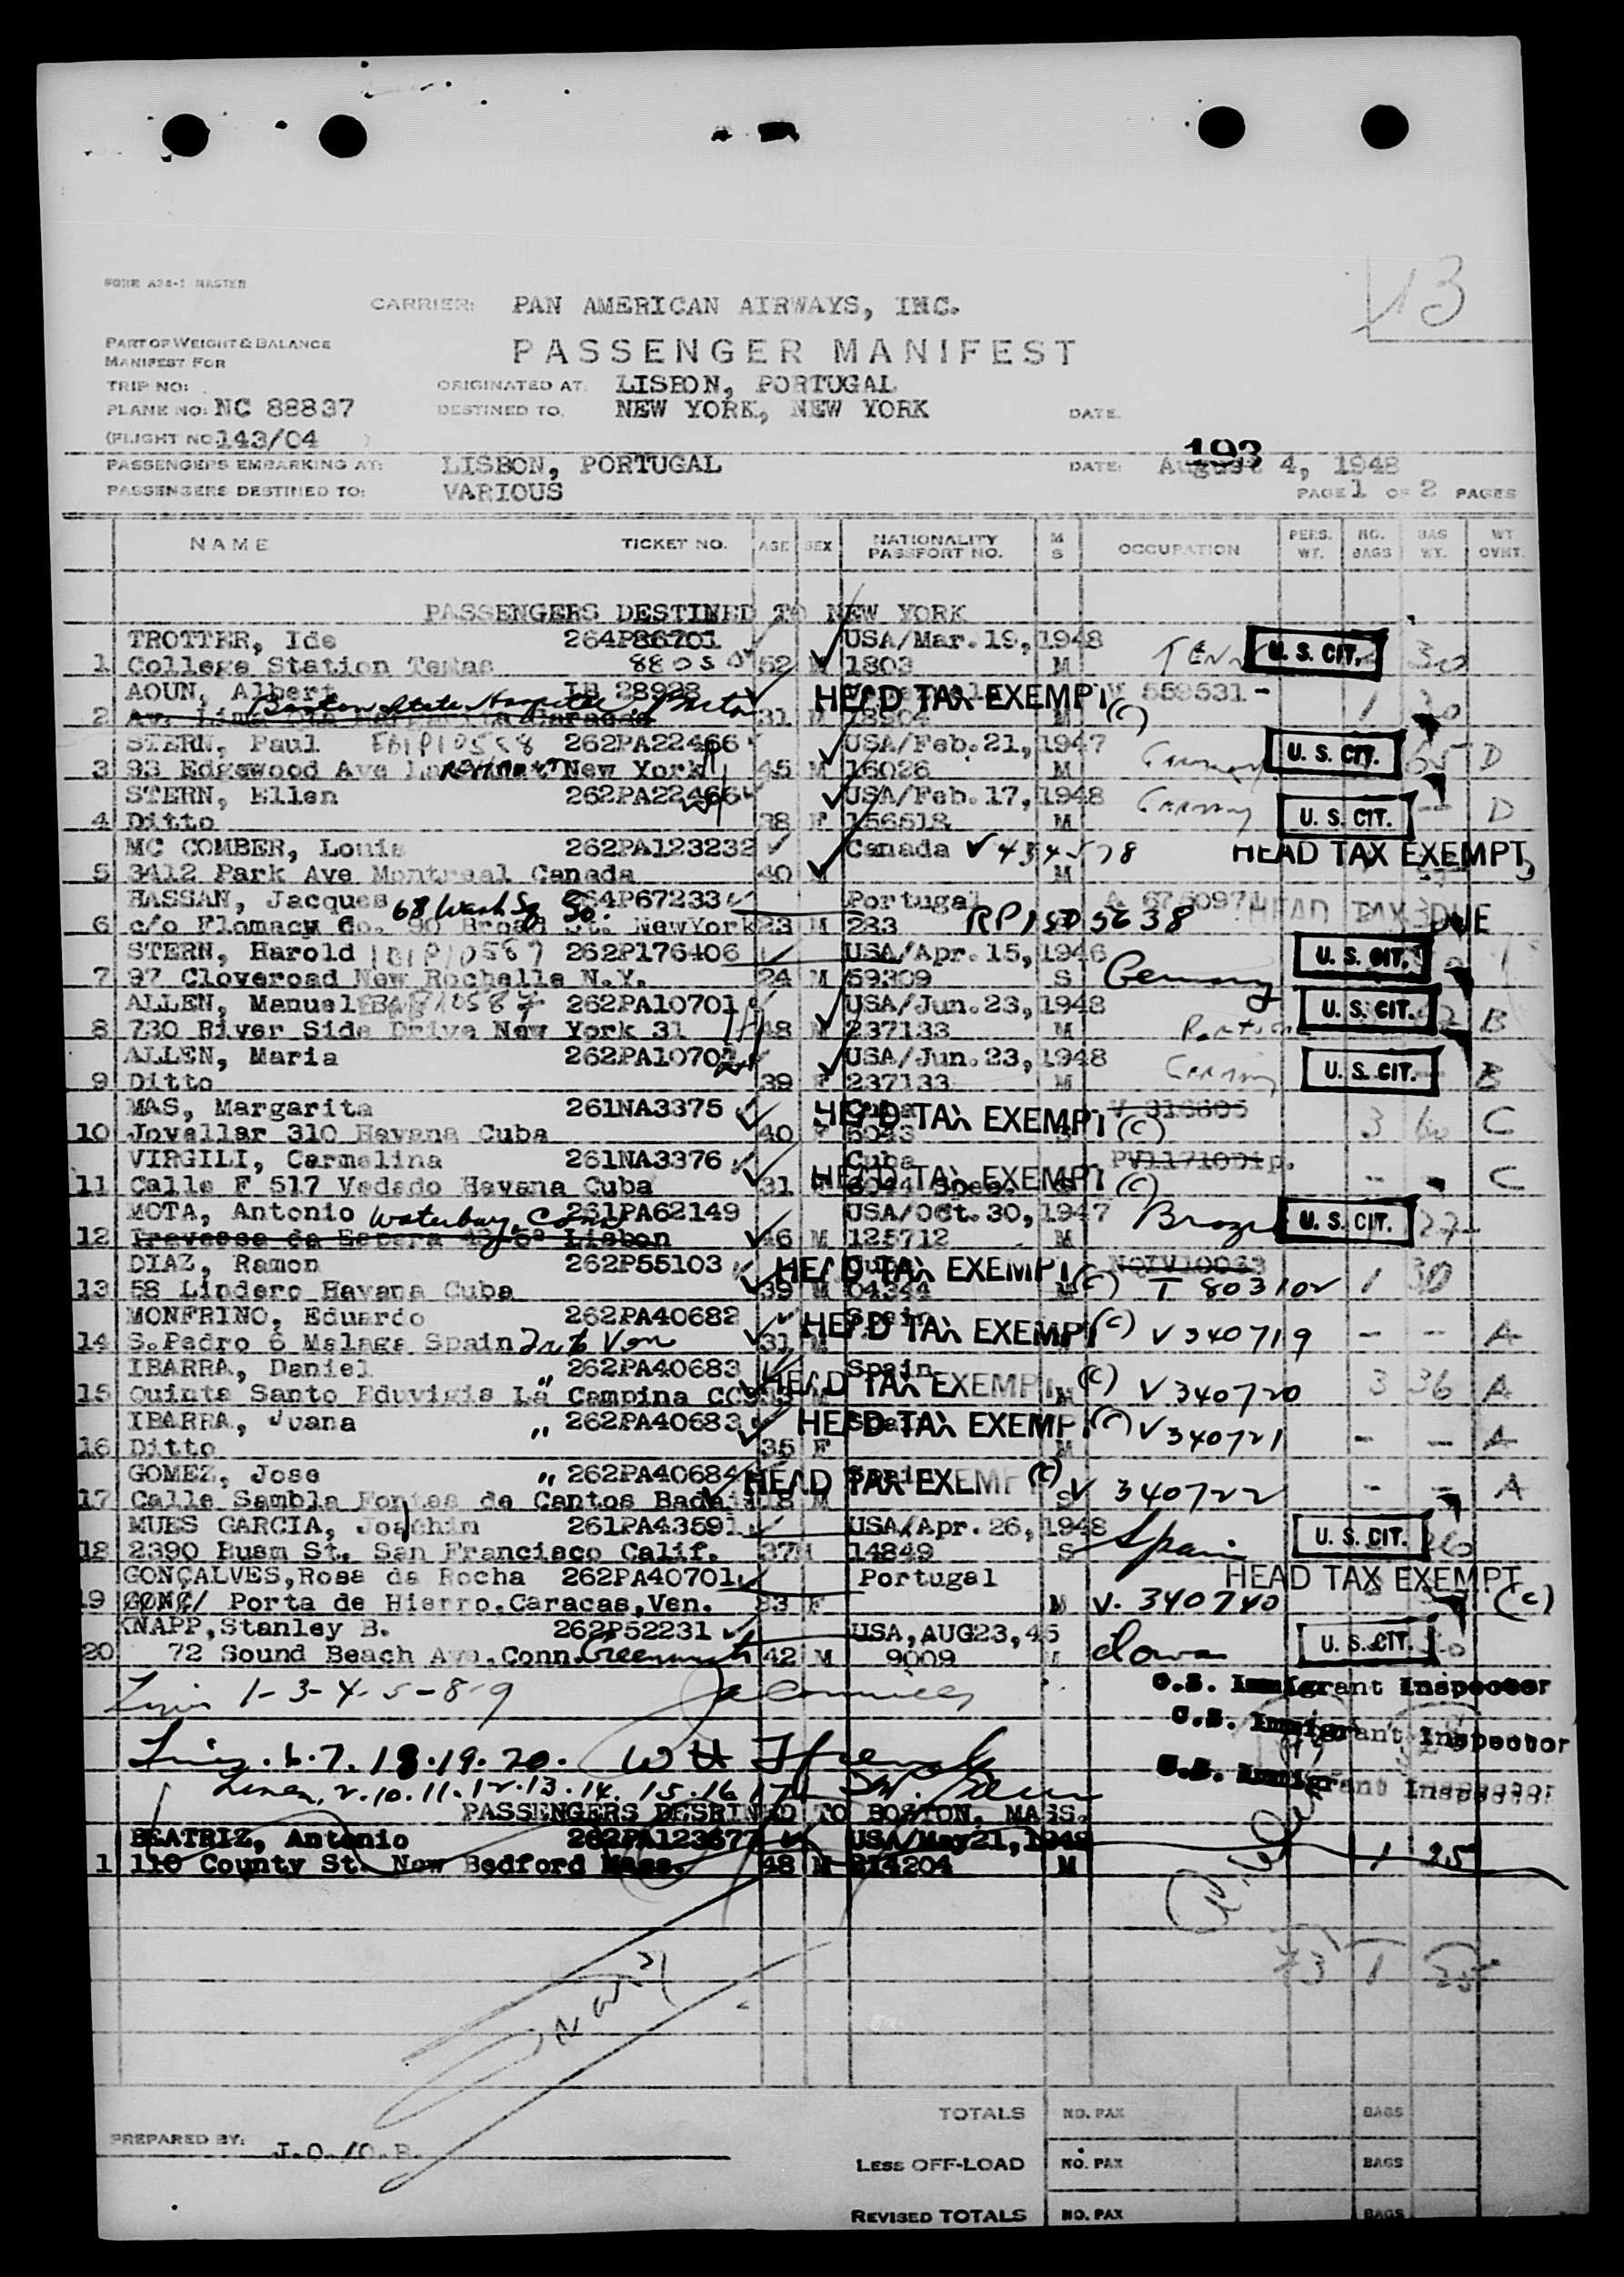 FORM A24-1 MASTER
V3
CARRIER: PAN AMERICAN AIRWAYS, INC.
PART OF WEIGHT & BALANCE
MANIFEST FOR
PASSENGER MANIFEST
TRIP NO:
ORIGINATED AT. LISBON, PORTUGAL
PLANE NO: NC 88837
DESTINED TO. NEW YORK, NEW YORK
DATE.
(FLIGHT NO 143/04 )
193
PASSENGERS EMBARKING AT: LISBON, PORTUGAL
DATE: August 4, 1948
PASSENGERS DESTINED TO: VARIOUS
PAGE 1 OF 2 PAGES
NAME TICKET NO. AGE SEX NATIONALITY PASSPORT NO. M S OCCUPATION PERS. WT. NO. BAGS BAG WT. WT OVHT.
PASSENGERS DESTINED TO NEW YORK
TROTTER, Ide 264P86701 USA/Mar. 19, 1948
1 College Station Texas 52 M 1803 M TENN U. S. CIT. 30
AOUN, Albert 28928 HEAD TAX EXEMPT 559531 -
2 Boston State Hospital Boston 31 M 18904 M (C) 1
STERN, Paul 262PA22466 USA/Feb. 21, 1947
3 93 Edgewood Ave New York 45 M 16026 M Germany U. S. CIT. 65 D
STERN, Ellen 262PA22466 USA/Feb. 17, 1948
4 Ditto 38 F 156618 M Germany U. S. CIT. -- D
MC COMBER, Louis 262PA123232 Canada V 434578 HEAD TAX EXEMPT
5 3412 Park Ave Montreal Canada 40 M M
HASSAN, Jacques 68 Wash Sq So. 264P67233 Portugal HEAD TAX DUE
6 c/o Flomacy Co. 90 Broad St. NewYork 23 M 283
STERN, Harold 262P176406 USA/Apr. 15, 1946
7 97 Cloveroad New Rochelle N.Y. 24 M 59309 S Germany U. S. CIT.
ALLEN, Manuel 262PA10701 USA/Jun. 23, 1948
8 730 River Side Drive New York 31 48 M 237133 M U. S. CIT. B
ALLEN, Maria 262PA10702 USA/Jun. 23, 1948
9 Ditto 39 F 237133 M Germany U. S. CIT. B
MAS, Margarita 261NA3375 Cuba HEAD TAX EXEMPT V 316605
10 Jovellar 310 Havana Cuba 40 F (C) 3 60 C
VIRGILI, Carmelina 261NA3376 Cuba HEAD TAX EXEMPT
11 Calle F 517 Vedado Havana Cuba 31 (C) - - C
MOTA, Antonio Waterbury, Conn 261PA62149 USA/Oct. 30, 1947
12 Travessa da Espera Lisbon 46 M 125712 M Brazil U. S. CIT. 27
DIAZ, Ramon 262P55103 HEAD TAX EXEMPT
13 58 Lindero Havana Cuba 39 M 04344 M (C) T 803102 1 30
MONFRINO, Eduardo 262PA40682 Spain HEAD TAX EXEMPT
14 S.Pedro 6 Malaga Spain 31 M (C) V 340719 - -- A
IBARRA, Daniel " 262PA40683 Spain HEAD TAX EXEMPT
15 Quinta Santo Eduvigis La Campina M (C) V 340720 3 36 A
IBARRA, Juana " 262PA40683 Spain HEAD TAX EXEMPT
16 Ditto 35 F M (C) V 340721 - -- A
GOMEZ, Jose " 262PA40684 Spain HEAD TAX EXEMPT
17 Calle Sambla Fontes de Cantos 18 M S (C) V 340722 - -- A
MUES GARCIA, Joachim 261PA43591 USA/Apr. 26, 1948
18 2390 Busm St. San Francisco Calif. 37 M 14849 S Spain U. S. CIT.
GONÇALVES,Rosa da Rocha 262PA40701 Portugal HEAD TAX EXEMPT
19 Porta de Hierro.Caracas,Ven. 33 F M V. 340740 (C)
KNAPP,Stanley B. 262P52231 USA,AUG23,45
20 72 Sound Beach Ave.Conn. Greenwich 42 M 9009 Iowa U. S. CIT.
Lines 1-3-4-5-8-9
U.S. Immigrant Inspector
Lines. 6.7.18.19.20. W H
U.S. Immigrant Inspector
Lines, 2.10.11.12.13.14.15.16 17
U.S. Immigrant Inspector
PASSENGERS DESRINED TO BOSTON, MASS.
BEATRIZ, Antonio 262PA123677 USA/May21,1948
1 110 County St. New Bedford Mass. 48 M 214204 M 1 25
1 25
TOTALS NO. PAX BAGS
PREPARED BY: J.O./O.B.
LESS OFF-LOAD NO. PAX BAGS
REVISED TOTALS NO. PAX BAGS